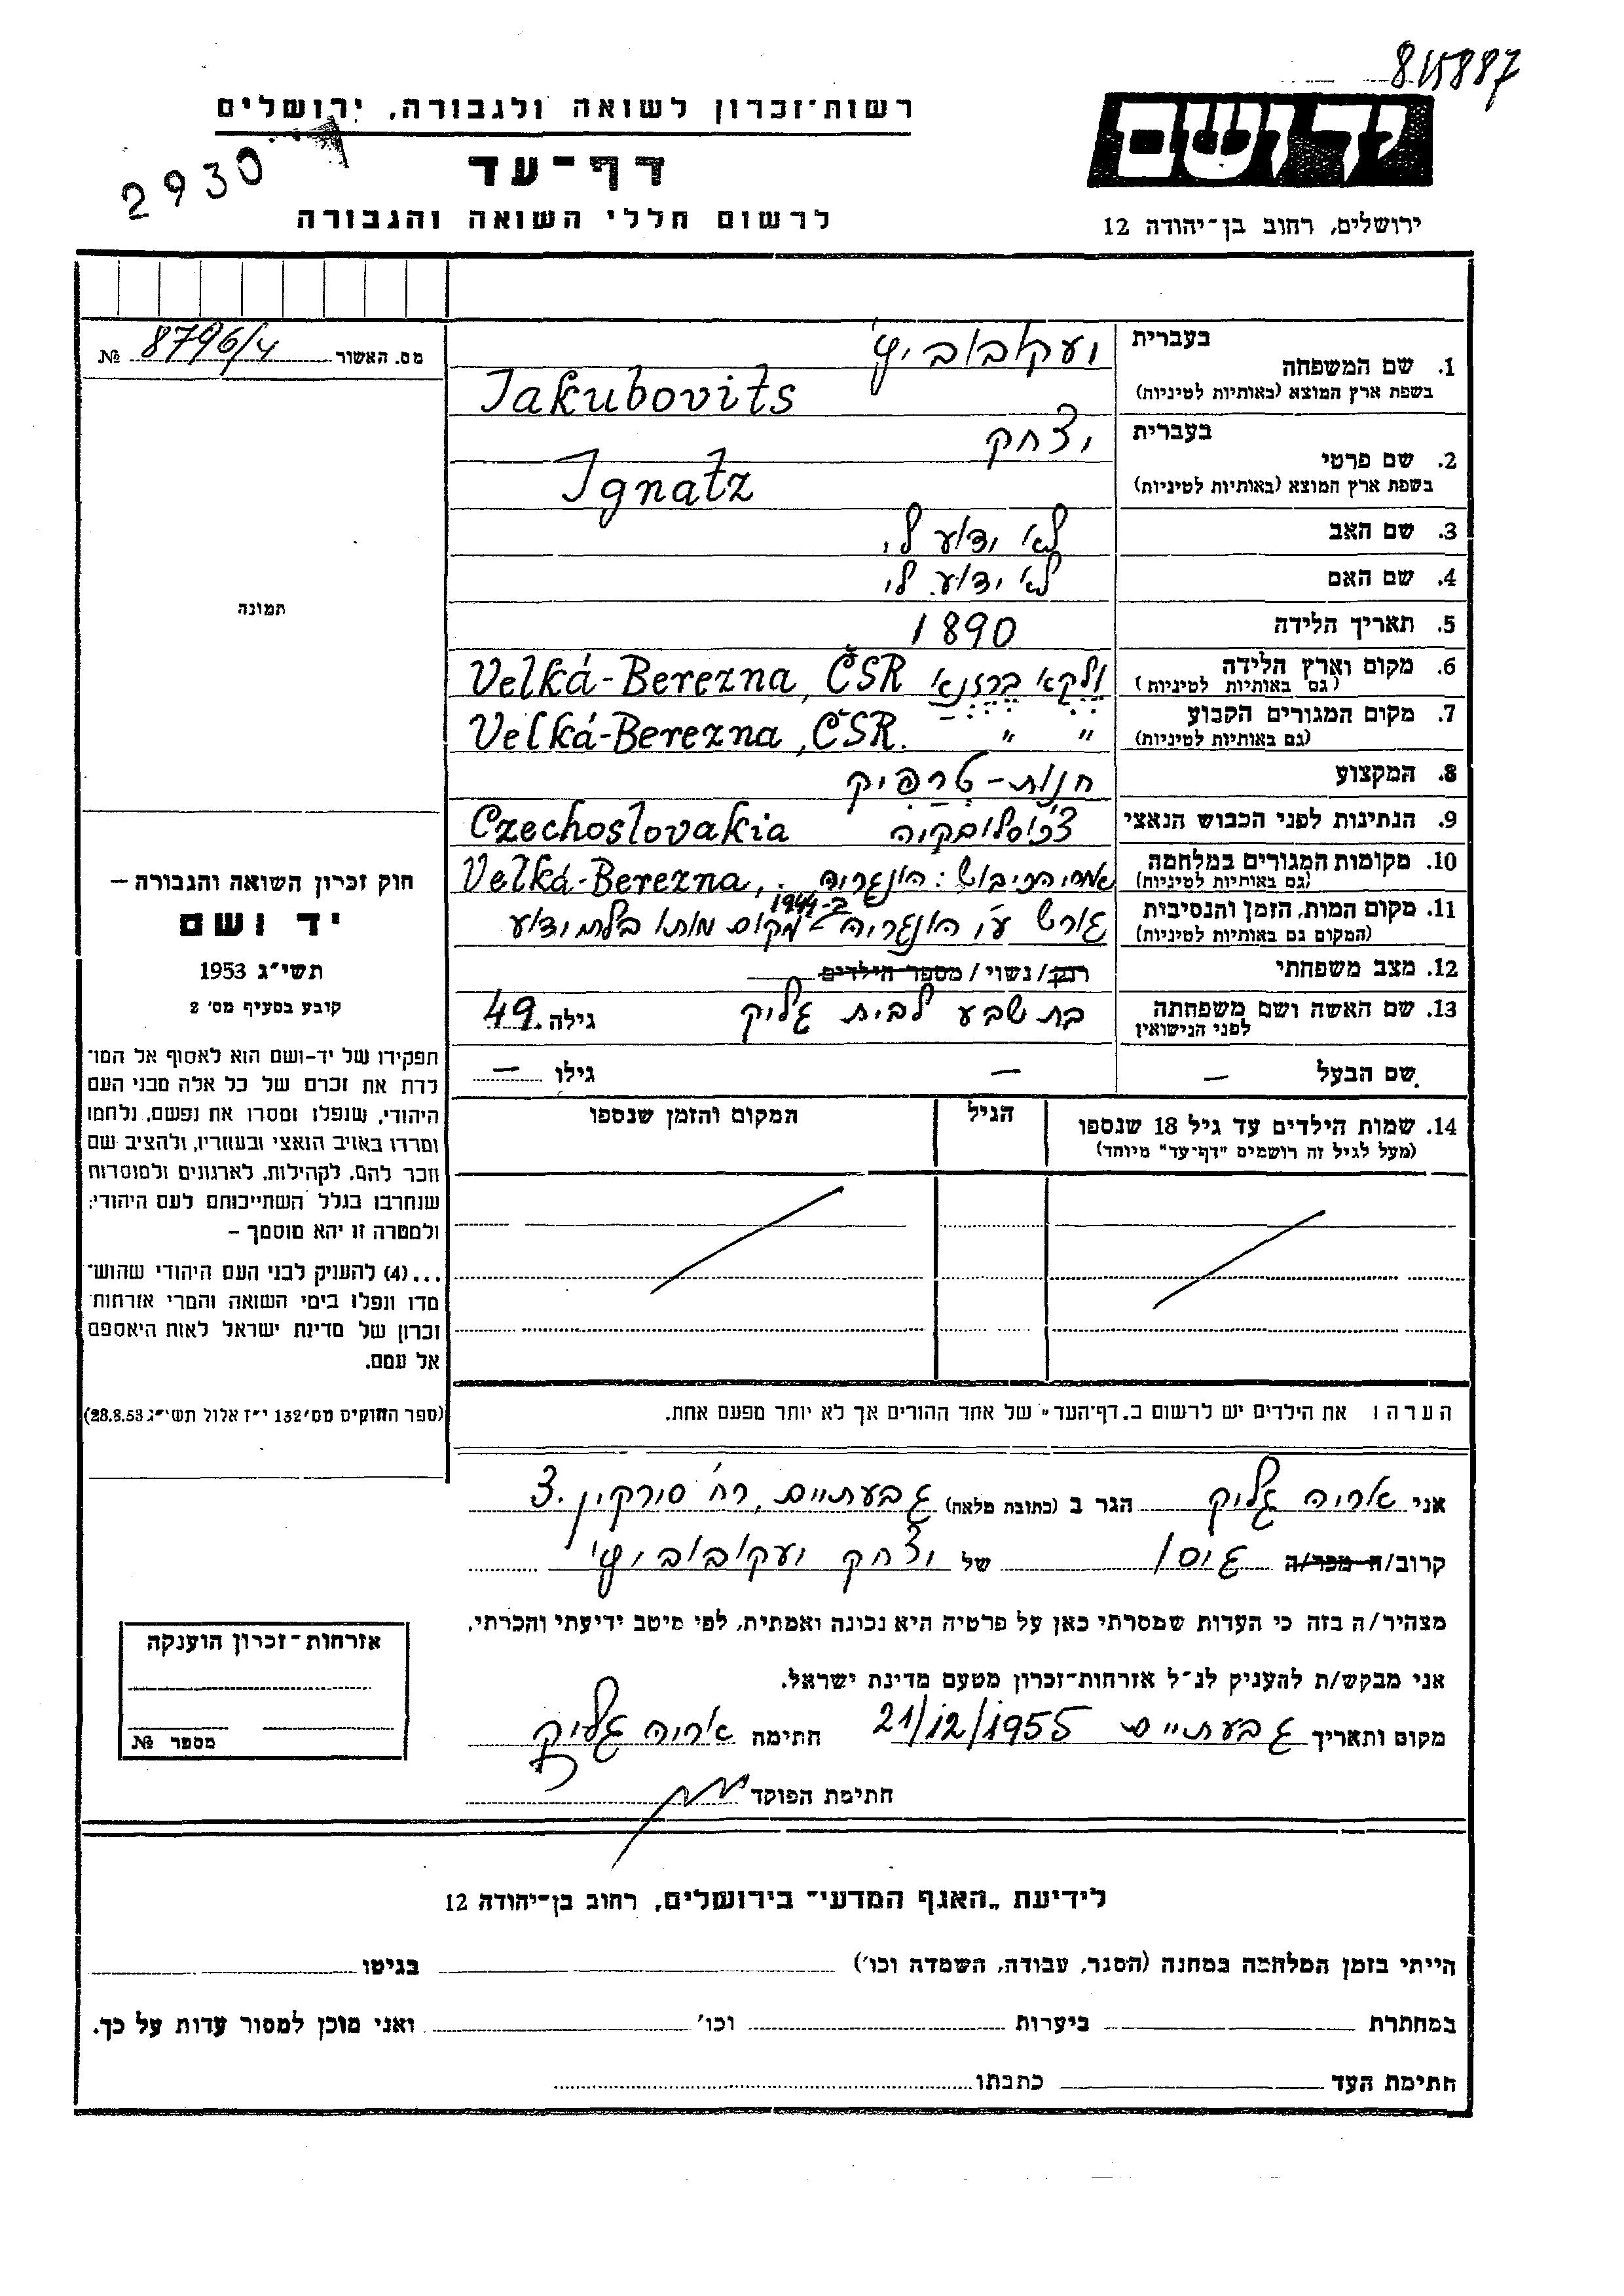 8/15887
רשות־זכרון לשואה ולגבורה, ירושלים
יד ושם
2930
דף־עד
לרשום חללי השואה והגבורה
ירושלים, רחוב בן־יהודה 12
מס. האשור 8796/4 №
בעברית
1. שם המשפחה
יעקובוביץ
בשפת ארץ המוצא (באותיות לטיניות)
Jakubovits
בעברית
2. שם פרטי
יצחק
בשפת ארץ המוצא (באותיות לטיניות)
Ignatz
3. שם האב לא ידוע לי
4. שם האם לא ידוע לי
תמונה
5. תאריך הלידה 1890
6. מקום וארץ הלידה ולקא ברזנא Velká-Berezna, ČSR
(גם באותיות לטיניות)
7. מקום המגורים הקבוע " " Velká-Berezna, ČSR.
(גם באותיות לטיניות)
8. המקצוע חנות-טרפיק
9. הנתינות לפני הכבוש הנאצי צ'כוסלובקיה Czechoslovakia
10. מקומות המגורים במלחמה אחרי הכיבוש: הונגריה, Velká-Berezna
(גם באותיות לטיניות)
11. מקום המות, הזמן והנסיבות גורש ע"י הונגריה ב-1944 מקום מותו בלתי ידוע
(המקום גם באותיות לטיניות)
12. מצב משפחתי רוק/ נשוי / מספר הילדים
13. שם האשה ושם משפחתה בת שבע לבית גליק גילה 49
לפני הנישואין
שם הבעל — — גילו —
14. שמות הילדים עד גיל 18 שנספו הגיל המקום והזמן שנספו
(מעל לגיל זה רושמים "דף־עד" מיוחד)
חוק זכרון השואה והגבורה –
יד ושם
תשי״ג 1953
קובע בסעיף מס׳ 2
תפקידו של יד-ושם הוא לאסוף אל המו־
לדת את זכרם של כל אלה מבני העם
היהודי, שנפלו ומסרו את נפשם, נלחמו
ומרדו באויב הנאצי ובעוזריו, ולהציב שם
וזכר להם, לקהילות, לארגונים ולמוסדות
שנחרבו בגלל השתייכותם לעם היהודי;
ולמטרה זו יהא מוסמך –
...(4) להעניק לבני העם היהודי שהוש־
מדו ונפלו בימי השואה והמרי אזרחות־
זכרון של מדינת ישראל לאות היאספם
אל עמם.
(ספר החוקים מס׳ 132 י״ז אלול תשי״ג 28.8.53)
הערה: את הילדים יש לרשום ב„דף־העד״ של אחד ההורים אך לא יותר מפעם אחת.
אני אריה גליק הגר ב (כתובת מלאה) גבעתיים, רח' סירקין 3.
קרוב/ה מכר/ה גיסו של יצחק יעקובוביץ'
מצהיר/ה בזה כי העדות שמסרתי כאן על פרטיה היא נכונה ואמתית, לפי מיטב ידיעתי והכרתי.
אני מבקש/ת להעניק לנ״ל אזרחות־זכרון מטעם מדינת ישראל.
מקום ותאריך גבעתיים 21/12/1955 חתימה אריה גליק
חתימת הפוקד
אזרחות־זכרון הוענקה
מספר №
לידיעת „האגף המדעי״ בירושלים, רחוב בן־יהודה 12
הייתי בזמן המלחמה במחנה (הסגר, עבודה, השמדה וכו׳) בגיטו
במחתרת ביערות וכו׳ ואני מוכן למסור עדות על כך.
חתימת העד כתבתו